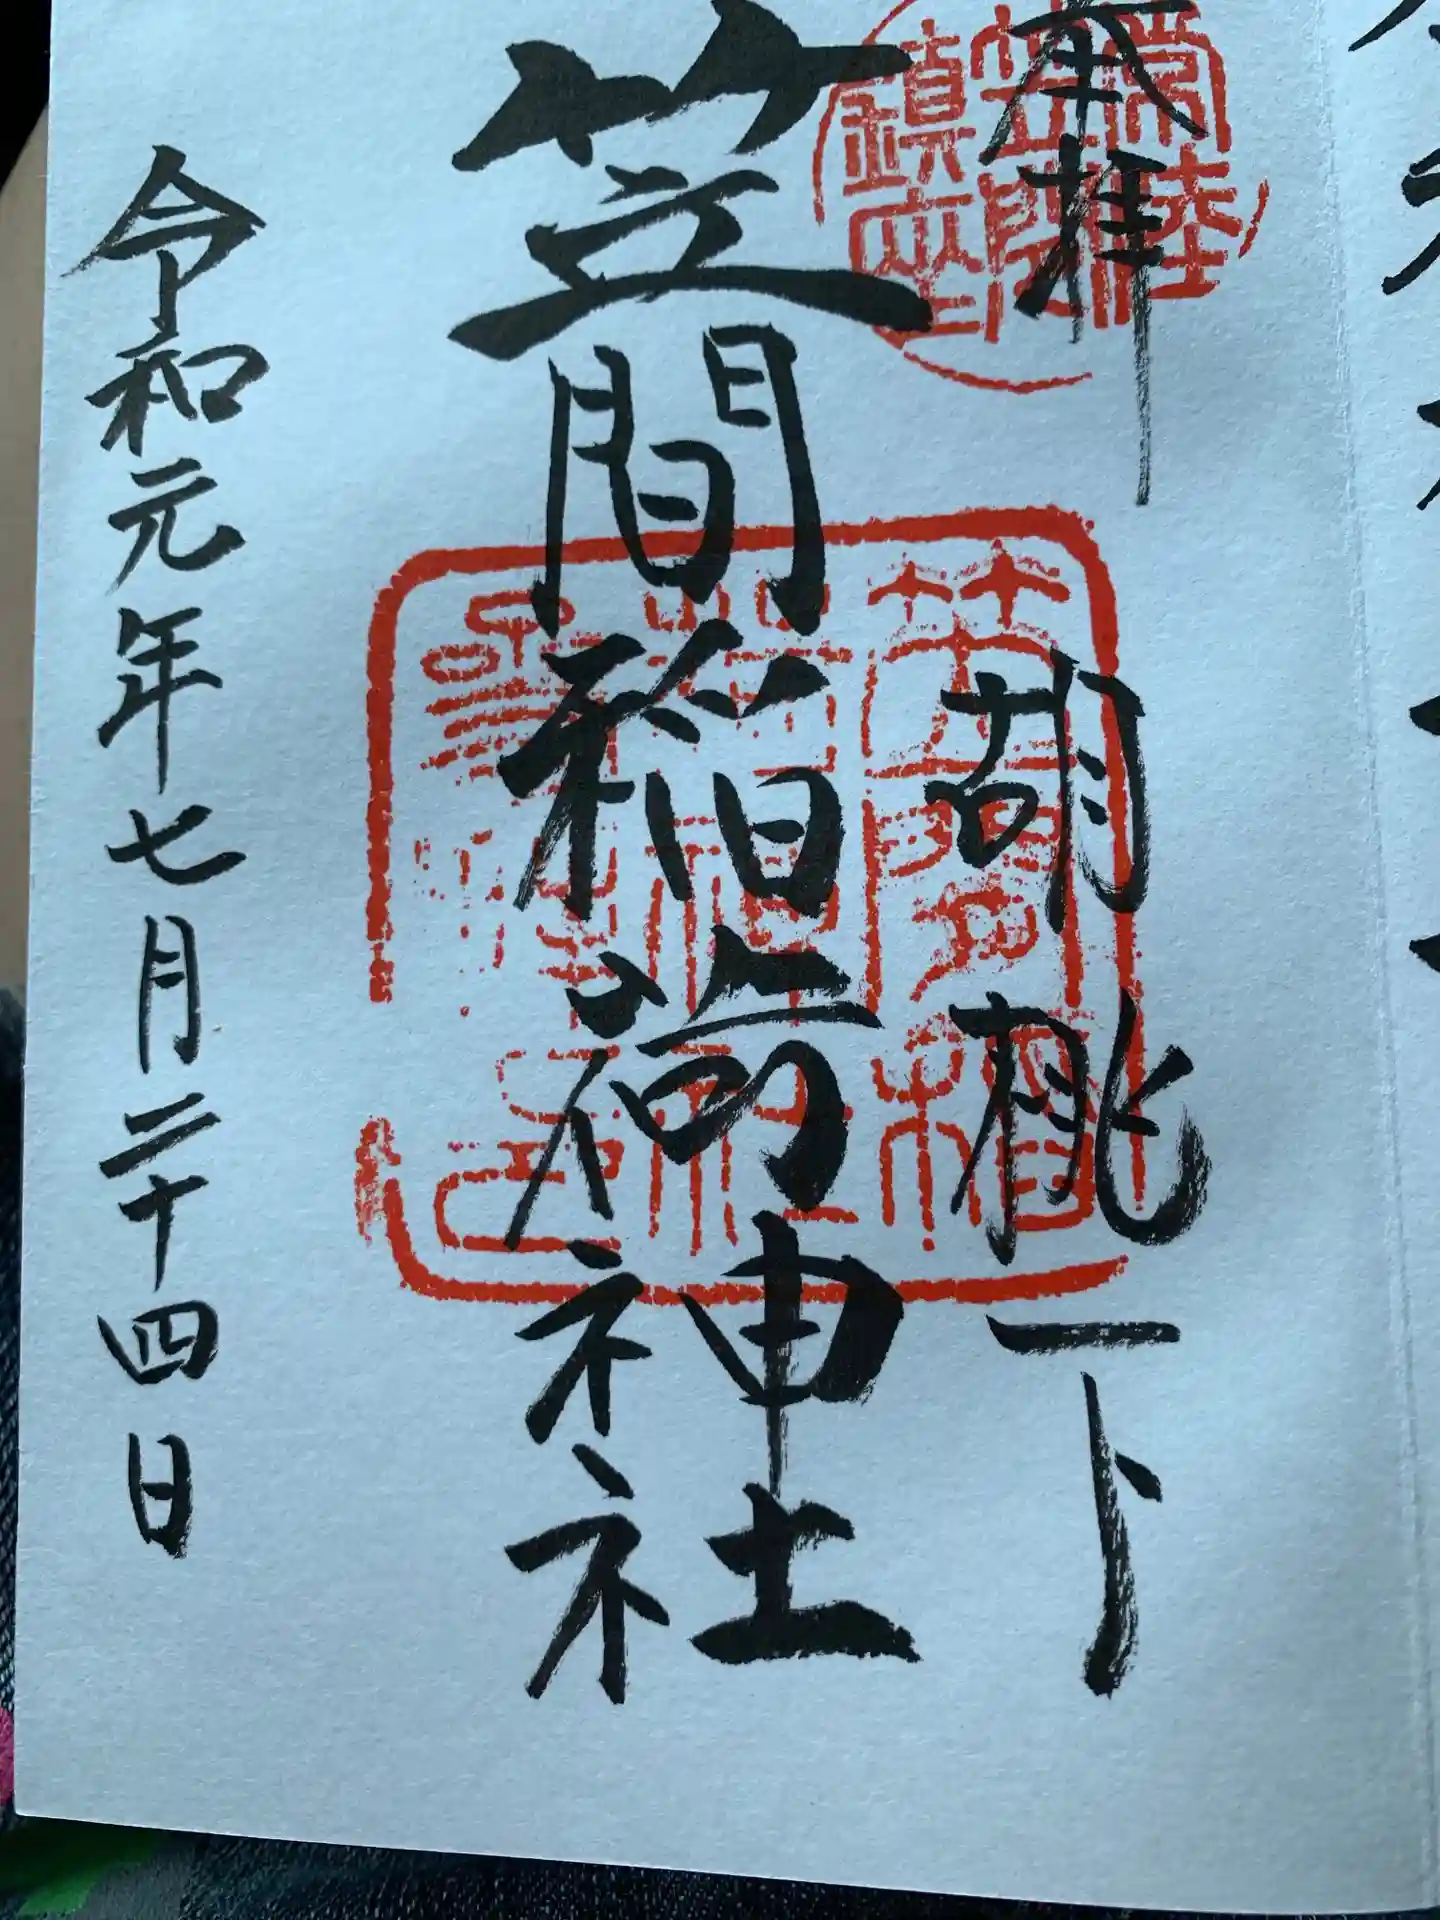 奉拝
胡桃下
笠間稲荷神社
令和元年七月二十四日
常陸
笠間
鎮座